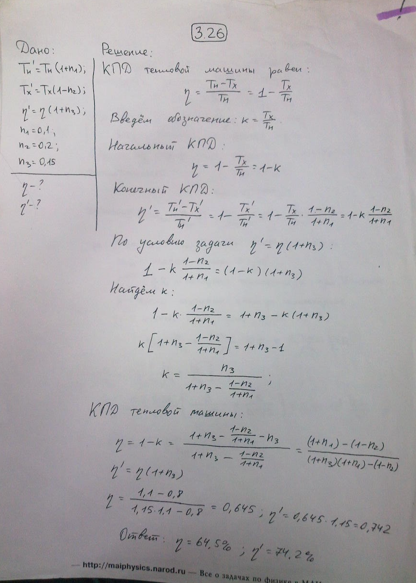 3.26
Дано:
Tн' = Tн(1+n₁);
Tх' = Tх(1-n₂);
η' = η(1+n₃);
n₁ = 0,1;
n₂ = 0,2;
n₃ = 0,15
η - ?
η' - ?
Решение:
КПД тепловой машины равен:
η = (Tн - Tх)/Tн = 1 - Tх/Tн
Введём обозначение: k = Tх/Tн.
Начальный КПД:
η = 1 - Tх/Tн = 1 - k
Конечный КПД:
η' = (Tн' - Tх')/Tн' = 1 - Tх'/Tн' = 1 - Tх/Tн · (1-n₂)/(1+n₁) = 1 - k (1-n₂)/(1+n₁)
По условию задачи η' = η(1+n₃):
1 - k (1-n₂)/(1+n₁) = (1-k)(1+n₃)
Найдём k:
1 - k · (1-n₂)/(1+n₁) = 1+n₃ - k(1+n₃)
k[1+n₃ - (1-n₂)/(1+n₁)] = 1+n₃-1
k = n₃/(1+n₃ - (1-n₂)/(1+n₁));
КПД тепловой машины:
η = 1-k = (1+n₃ - (1-n₂)/(1+n₁) - n₃)/(1+n₃ - (1-n₂)/(1+n₁)) = ((1+n₁)-(1-n₂))/((1+n₃)(1+n₁)-(1-n₂))
η' = η(1+n₃)
η = (1,1-0,8)/(1,15·1,1-0,8) = 0,645; η' = 0,645·1,15 = 0,742
Ответ: η = 64,5%; η' = 74,2%
— http://maiphysics.narod.ru — Все о задачах по физике в